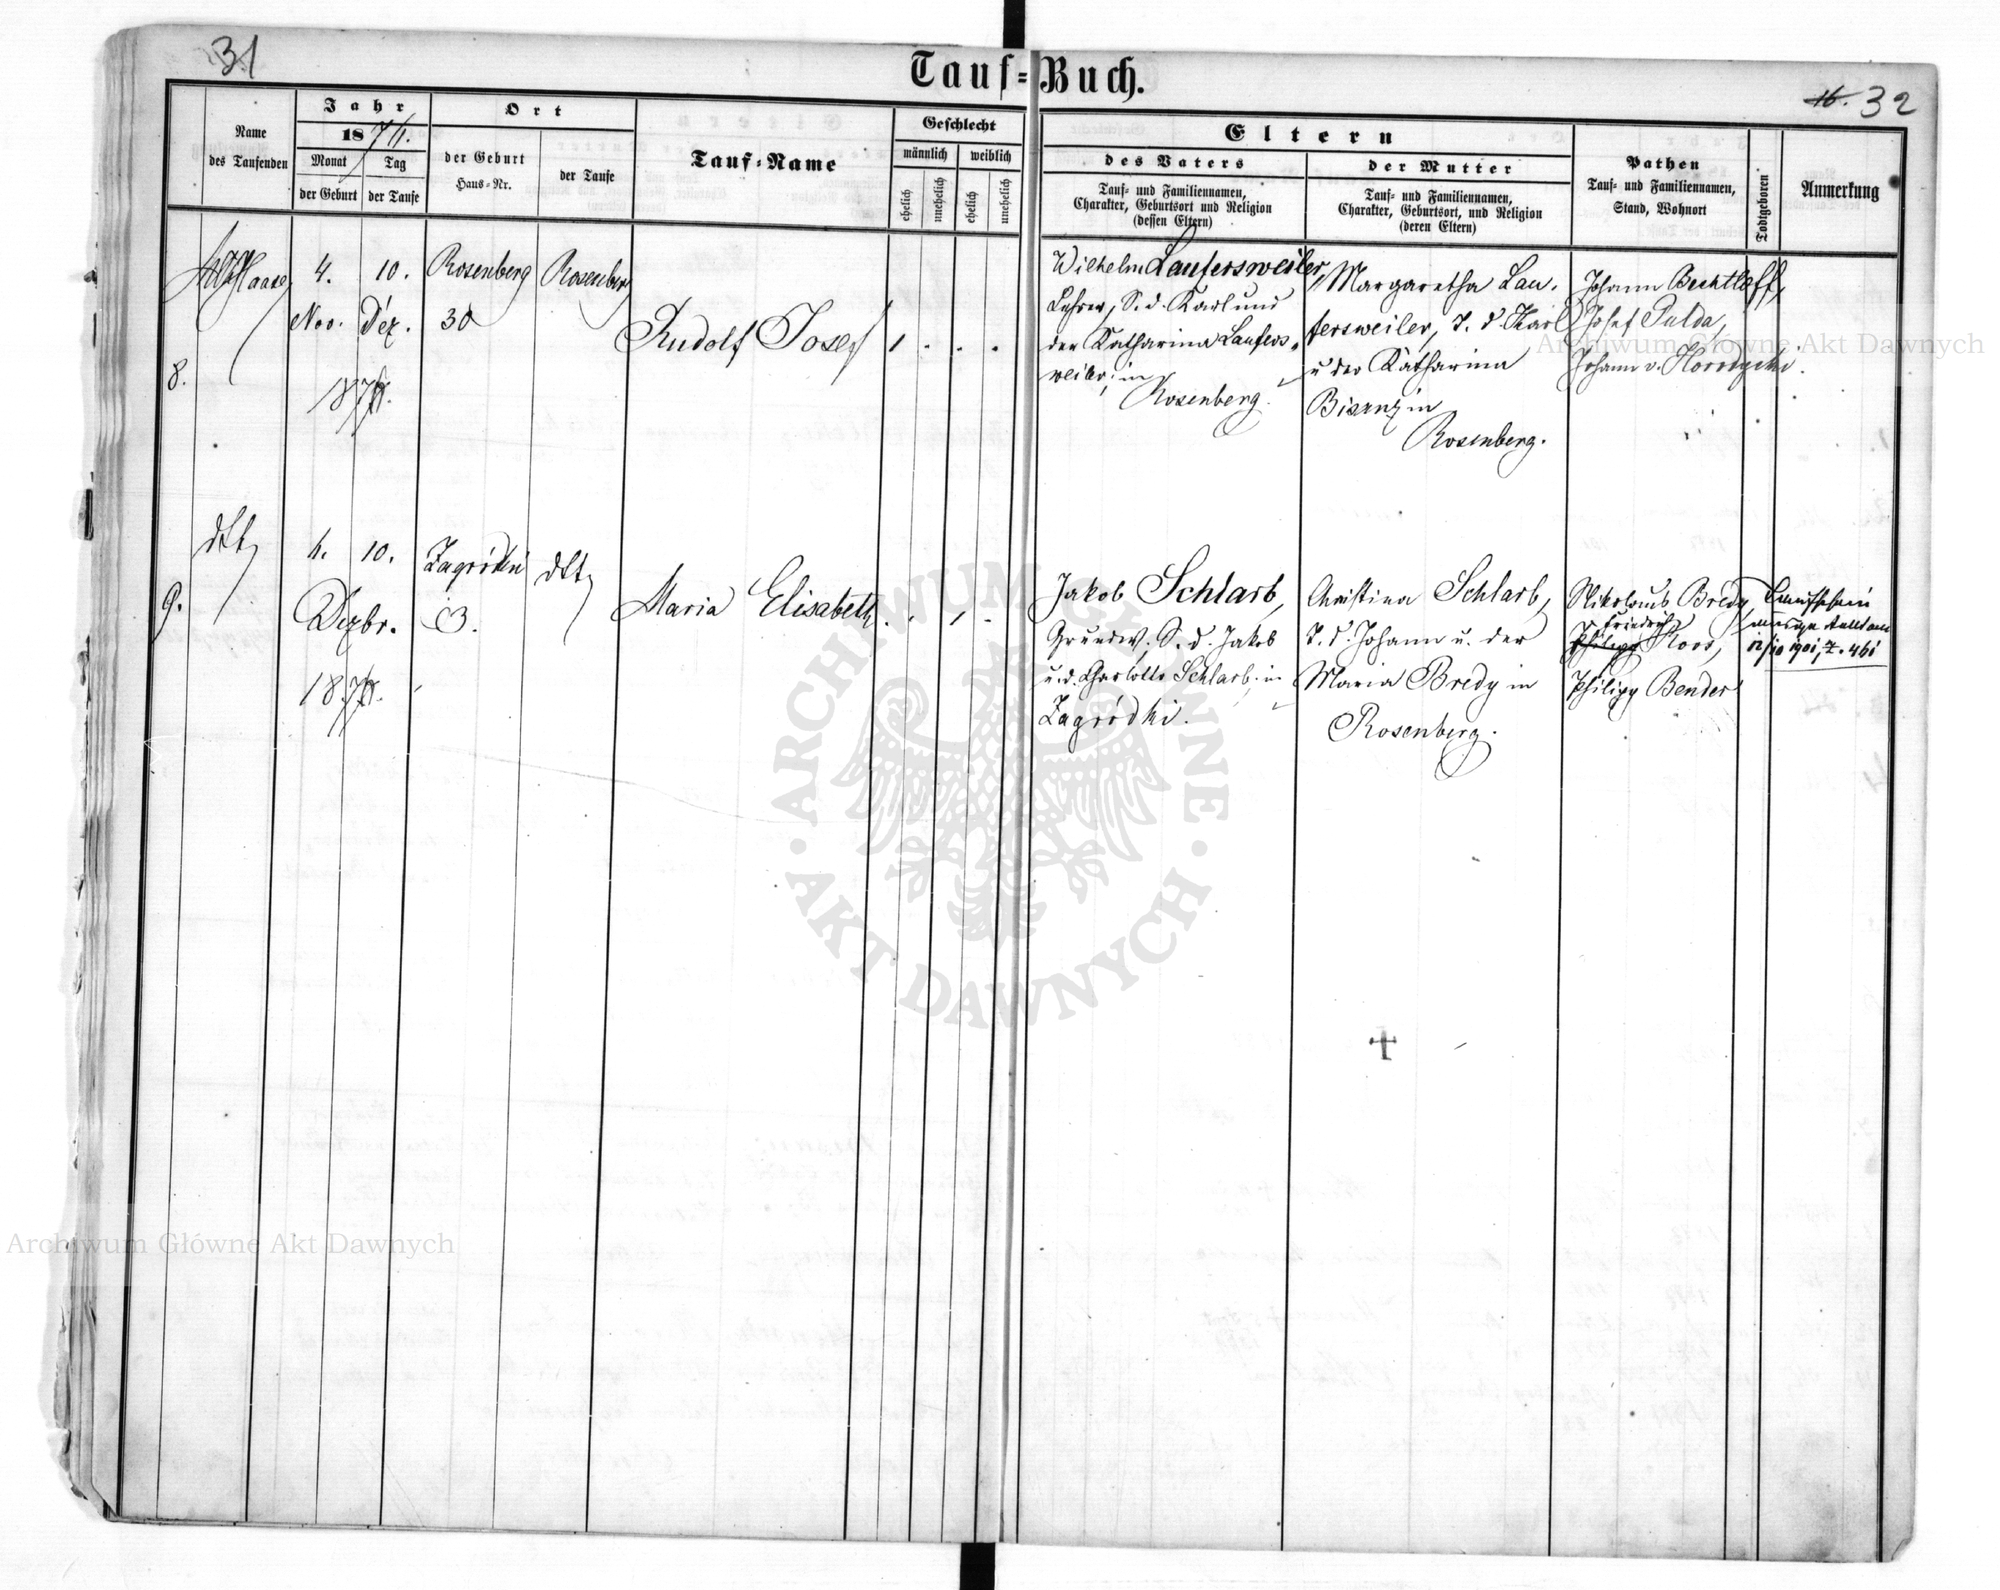 31
Tauf-Buch.
16. 32
Name
des Taufenden
Jahr
18
Monat
der Geburt
Tag
der Taufe
Ort
der Geburt
Haus-Nr.
der Taufe
Tauf-Name
Geschlecht
männlich
weiblich
ehelich
unehelich
ehelich
unehelich
Eltern
des Vaters
Tauf- und Familiennamen,
Charakter, Geburtsort und Religion
(dessen Eltern)
der Mutter
Tauf- und Familiennamen,
Charakter, Geburtsort, und Religion
(deren Eltern)
Pathen
Tauf- und Familiennamen,
Stand, Wohnort
Todtgeboren
Anmerkung
8.
Haase
4.
Nov.
10.
Dez.
Rosenberg
30
Rosenberg
Rudolf Josef
1 . . .
Wilhelm Lautersweiler,
Lehrer, S. d. Karl und
der Katharina Lauters-
weiler, in
Rosenberg.
Margaretha Lau-
tersweiler, T. d. Karl
u der Katharina
in
Rosenberg.
Johann Bechtloff,
Josef Pulda,
Johann v. Horodyski.
9.
dtto
10.
Dezbr.
Zagródki
3.
dtto
Maria Elisabeth
. . 1 .
Jakob Schlarb,
Grundw. S. d. Jakob
u. d. Charlotte Schlarb in
Zagródki.
Christina Schlarb,
T. d. Johann u. der
Maria Bredy in
Rosenberg.
Nikolaus Bredy,
Friedrich
Philipp Koos,
Philipp Bender
Taufschein
12/10 1901, Z. 461
Archiwum Główne Akt Dawnych
ARCHIWUM GŁÓWNE
· AKT DAWNYCH ·
Archiwum Główne Akt Dawnych